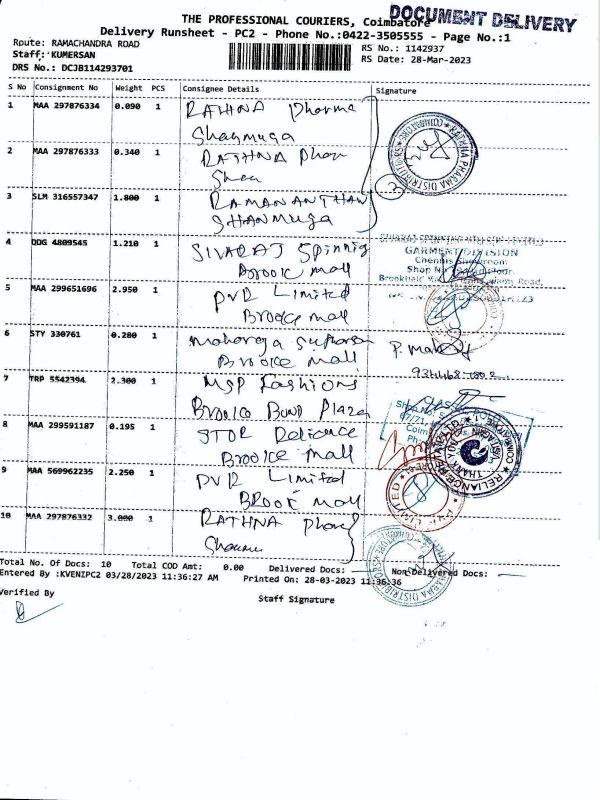 DOCUMENT DELIVERY
THE PROFESSIONAL COURIERS, Coimbatore
Delivery Runsheet - PC2 - Phone No.:0422-3505555 - Page No.:1
Route: RAMACHANDRA ROAD
RS No.: 1142937
Staff: KUMERSAN
RS Date: 28-Mar-2023
DRS No.: DCJB114293701
S No Consignment No Weight PCS Consignee Details Signature
1 MAA 297876334 0.090 1 RATHNA Pharma
Shagmuga
2 MAA 297876333 0.340 1 RATHNA Phar
3 SLM 316557347 1.800 1 RAMANANTHAN
SHANMUGA
3
4 QDG 4809545 1.210 1 SIVARAJ Spinnig
Brooke mall
GARMENT DIVISION
Chennis Showroom
5 MAA 299651696 2.950 1 PVR Limited
Brooke mall
6 STY 330761 0.280 1
Brooke mall
7 TRP 5542394 2.300 1 MSP Fashions
Brooke Bond Plaza
8 MAA 299591187 0.195 1 STOR Reliance
Brooke mall
9 MAA 569962235 2.250 1 PVR Limited
BROOK mall
10 MAA 297876332 3.000 1 RATHNA Phar
RATHNA PHARMA DISTRIBUTORS
COIMBATORE
Total No. Of Docs: 10 Total COD Amt: 0.00 Delivered Docs: Non Delivered Docs:
Entered By :KVENIPC2 03/28/2023 11:36:27 AM Printed On: 28-03-2023 11:36:36
Verified By
Staff Signature